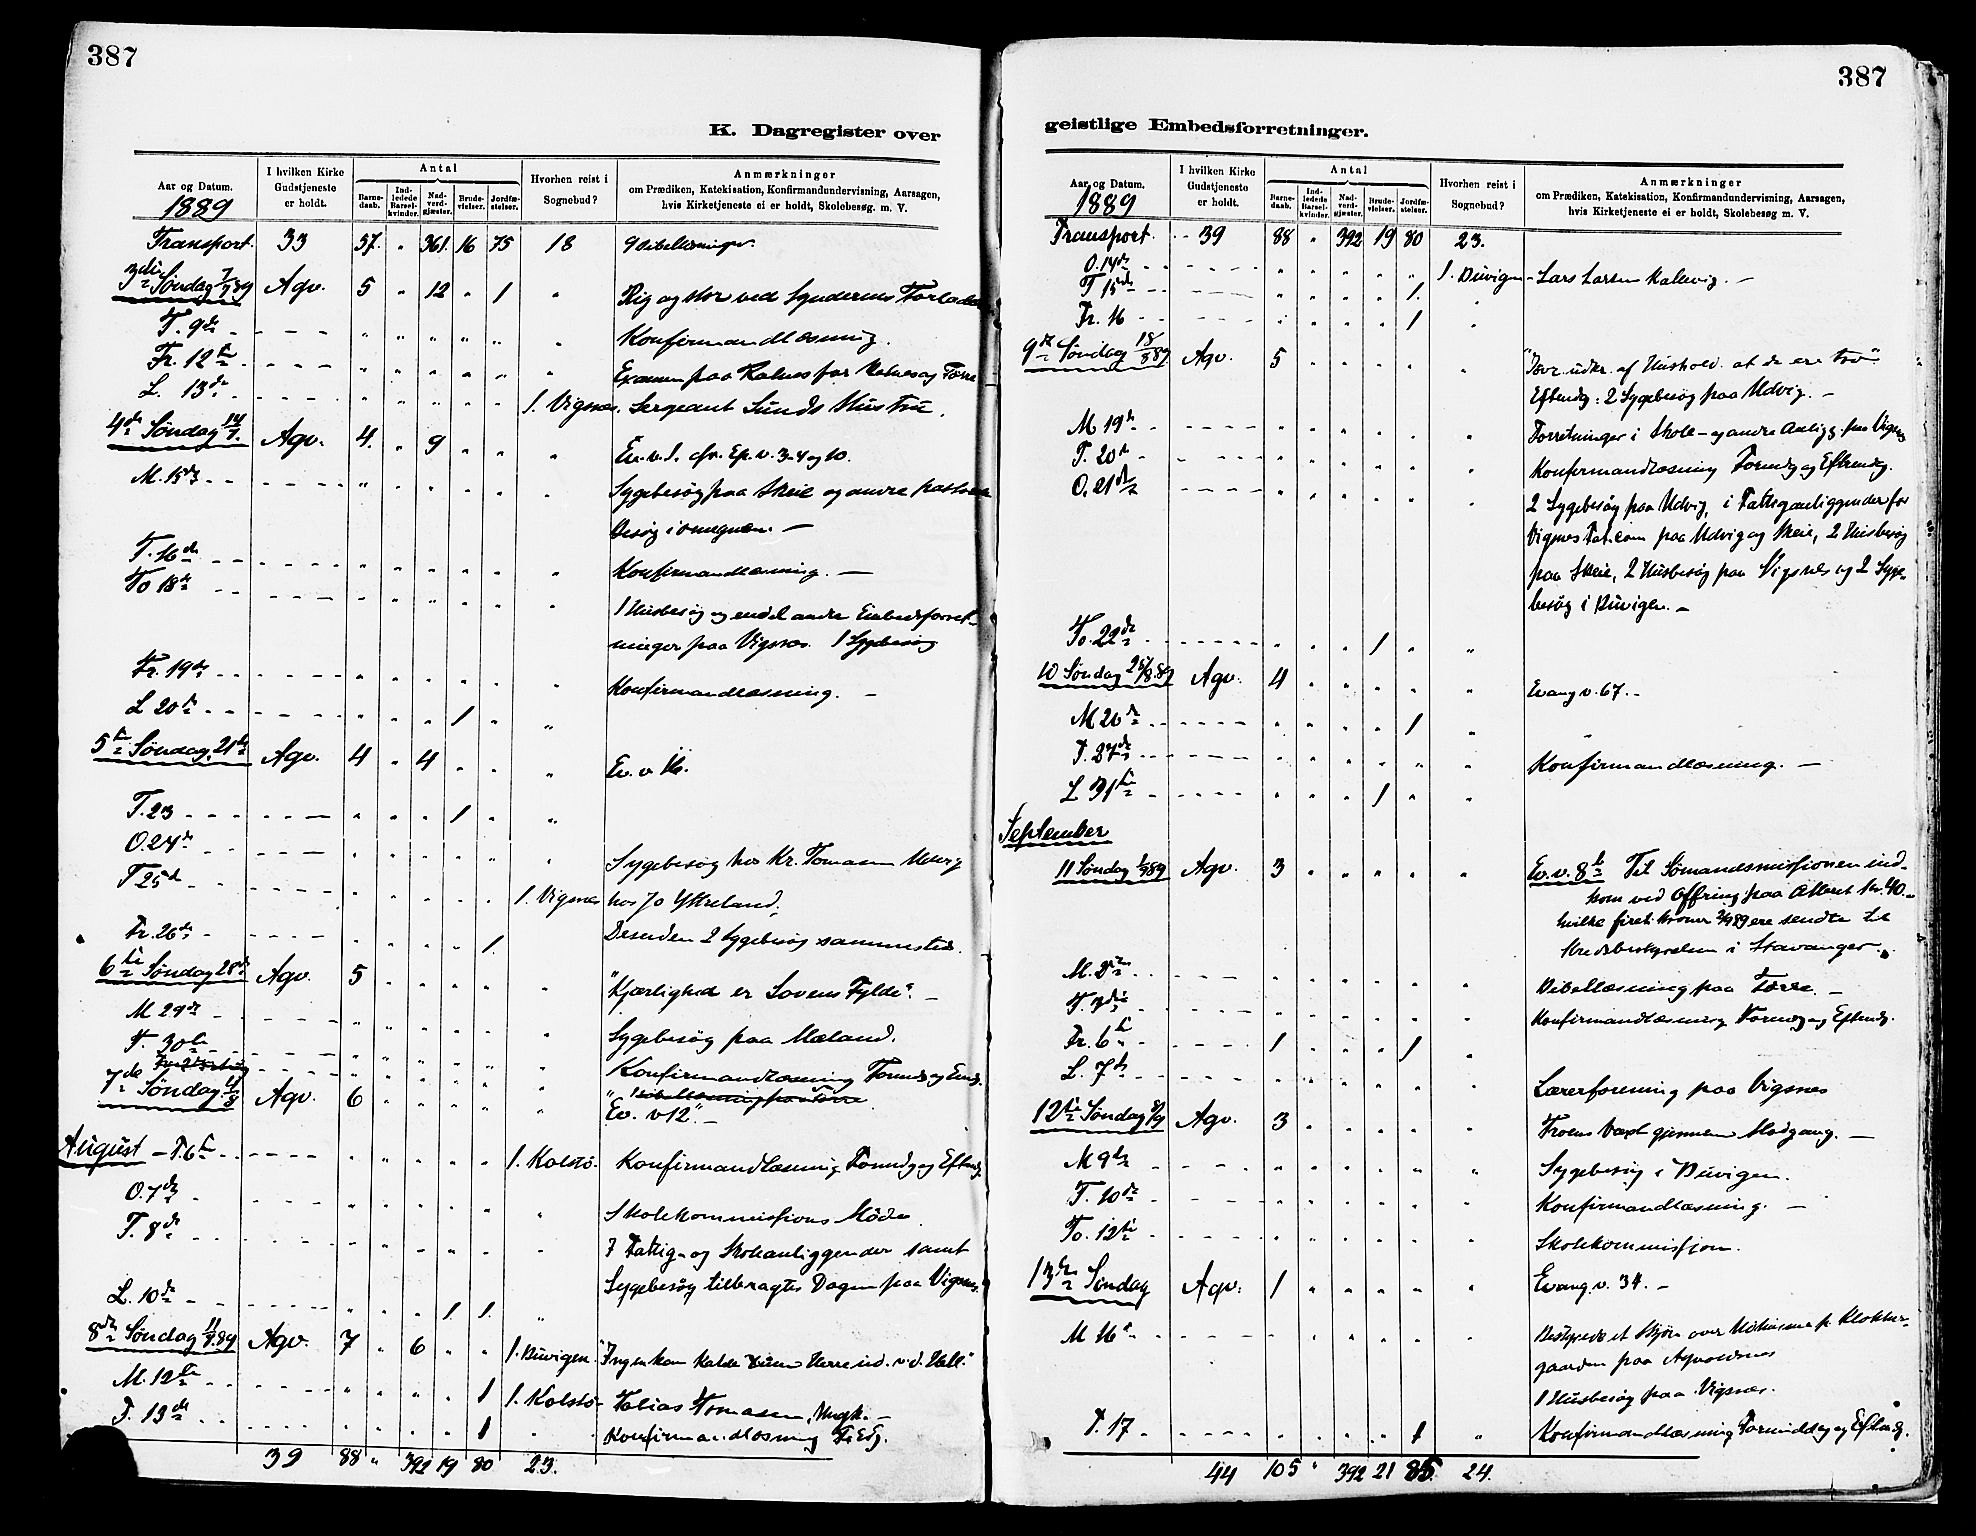 387
K. Dagregister over
Aar og Datum. I hvilken Kirke Gudstjeneste er holdt. Antal Barnedaab. Indledede Barselkvinder. Nadverdgjæster. Brudevielser. Jordfæstelser. Hvorhen reist i Sognebud? Anmærkninger om Prædiken, Katekisation, Konfirmandundervisning, Aarsagen, hvis Kirketjeneste ei er holdt, Skolebesøg. m. V.
1889
Transport. 33 57. " 361. 16 75 18
3die Søndag 7/7 89 Agv. 5 " 12 " 1 "
T. 9de Konfirmandlæsning.
Fr. 12te Examen paa
L. 13de 1. Vigsnes. Sergeant Sunds Hustru.
4de Søndag 14/7. Agv. 4. " 9 " " " Ev. v. 1. cfr. Ep. v. 3. 4 og 10.
M. 15de Sygebesøg paa Skeie og andre
besøg i omegnen. —
T. 16de Konfirmandlæsning. —
To 18de 1 Husbesøg og endel andre Embedsforret-
ninger paa Vigsnes. 1 Sygebesøg
Fr. 19de Konfirmandlæsning. —
L 20de 1
5te Søndag. 21de Agv. 4 " 4 " " " Ev. v. 16.
T. 23 1
O. 24de Sygebesøg hos Kr. Tomasen Udvig
T 25de 1. Vigsnes hos Jo
Fr. 26de 1. Desuden 2 Sygebesøg sammested.
6te Søndag 28de Agv. 5 "Kjærlighed er Lovens Fylde". —
M 29de Sygebesøg paa Mæland.
T. 30te Konfirmandlæsning Formdg og Eftmdg.
7de Søndag 4/8 Agv. 6 "Ev. v 12". —
August — T. 6te 1. Kolstø. Konfirmandlæsning Formdg og Eftmdg
O. 7de Skolekommissions Møde
T. 8de I Fattig- og Skoleanliggender samt
Sygebesøg tilbragtes Dagen paa Vigsnes.
L. 10de 1 1.
8de Søndag 11/8.89 Agv. 7 " 6 " " 1. Duvigen. "Ingen kan kalde Herre ud. v. d. Hell."
M. 12te 1 1. Kolstø. Tobias Tomasen, Ungk. —
T. 13de 1 Konfirmandlæsning
39 88 " 392 19 80 23.
387
geistlige Embedsforretninger.
Aar og Datum. I hvilken Kirke Gudstjeneste er holdt. Antal Barnedaab. Indledede Barselkvinder. Nadverdgjæster. Brudevielser. Jordfæstelser. Hvorhen reist i Sognebud? Anmærkninger om Prædiken, Katekisation, Konfirmandundervisning, Aarsagen, hvis Kirketjeneste ei er holdt, Skolebesøg m. V.
1889
Transport. 39 88 " 392 19 80 23.
O. 14de 1. Duvigen - Lars Larsen Kallevig. —
T 15de 1.
Fr. 16 1
9de Søndag 18/8 89 Agv. 5 af Hushold. at de ere tro"
Eftmdg: 2 Sygebesøg paa Udvig. —
M 19de Forretninger i Skole- og andre Anligg. paa Vigsnes
T. 20de Konfirmandlæsning Formdg og Eftmdg.
O. 21de 2 Sygebesøg paa Udvig, i Fattiganliggender for
Vigsnes Fat.com paa Udvig og Skeie, 2 Husbesøg
paa Skeie, 2 Husbesøg paa Vigsnes og 2 Syge-
besøg i Duvigen. —
To. 22de 1
10 Søndag 25/8.89 Agv. 4 Evang v. 67. —
M 26de 1
T. 27de Konfirmandlæsning. —
L 31te 1
September
11 Søndag 1/9 89 Agv. 3 Ev. v. 8de Til Sømandsmissionen ind-
kom ved Offring paa Alteret kr. 40. —
hvilke firti kroner ere sendte til
Kredsbestyrelsen i Stavanger.
M. 2den Bibellæsning paa Førre. —
T. 3die Konfirmandlæsning Formdg og Eftmdg.
Fr. 6te 1 1
L. 7de Lærerforening paa Vigsnes
12te Søndag 8/9 Agv. 3 Troens Væxt gjennem Modgang. —
M 9de Sygebesøg i Duvigen.
T. 10de Konfirmandlæsning. —
To. 12te Skolekommission.
13de Søndag Agv. 1 Evang. v. 34. —
M 16de Bestyrede et Skjøn over p. Klokker-
gaarden paa Agvoldsnes
1 Husbesøg paa Vigsnes.
T. 17 1 Konfirmandlæsning Formiddag og Eftmdg.
44 105 " 392 21 85 24.